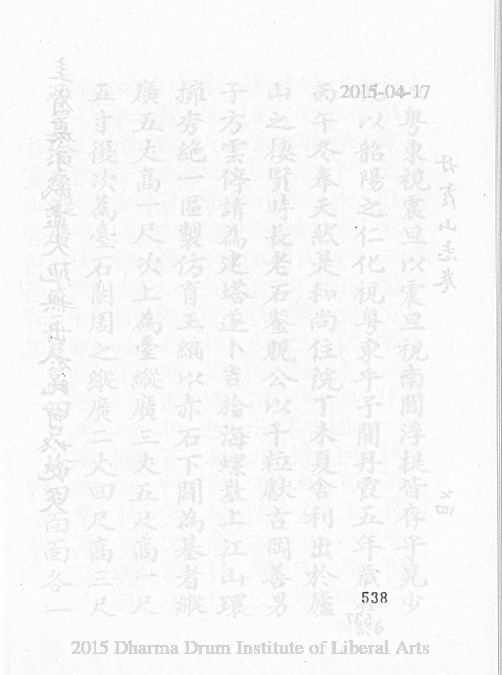 2015-04-17
粤東視震旦以震旦視南閻浮提皆存乎見少
以韶陽之仁化視粤東乎予開丹霞五年歲
丙午冬奉天然是和尚住院丁未夏舍利出於廬
山之棲賢時長老石鑒覞公以千粒獻古岡善男
子方雲停請為建塔遂卜吉於海螺巖上江山環
擁秀絶一區製仿育王稱以赤石下闢為基者縱
廣五丈高一尺次上為臺縱廣三丈五尺高一尺
五寸復次為臺石闌周之縱廣二丈四尺高三尺
面面各一
丹霞山志卷
538
537
2015 Dharma Drum Institute of Liberal Arts